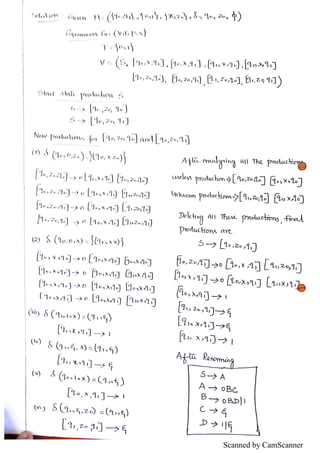 Solution: Given M = ({q0, q1}, {0,1}, {x, z0}, δ, q0, z0, ϕ)
Grammar G = (V, T, P, S)
T = {0,1}
V = {S, [q0, x, q0], [q0, x, q1], [q1, x, q0], [q1, x, q1]
[q0, z0, q0], [q0, z0, q1], [q1, z0, q0], [q1, z0, q1]}
Start State production S
S → [q0, z0, q0]
S → [q0, z0, q1]
New productions for [q0, z0, q0] and [q0, z0, q1]
(i) δ(q0, 0, z0) = {(q0, x z0)}
[q0, z0, q0] → 0 [q0, x, q0] [q0, z0, q0]
[q0, z0, q0] → 0 [q0, x, q1] [q1, z0, q0]
[q0, z0, q1] → 0 [q0, x, q0] [q0, z0, q1]
[q0, z0, q1] → 0 [q0, x, q1] [q1, z0, q1]
(2) δ(q0, 0, x) = {(q0, xx)}
[q0, x, q0] → 0 [q0, x, q0] [q0, x, q0]
[q0, x, q0] → 0 [q0, x, q1] [q1, x, q0]
[q0, x, q1] → 0 [q0, x, q0] [q0, x, q1]
[q0, x, q1] → 0 [q0, x, q1] [q1, x, q1]
(iii) δ(q0, 1, x) = (q1, ε)
[q0, x, q1] → 1
(iv) δ(q1, ε, x) = (q1, ε)
[q1, x, q1] → ε
(v) δ(q1, 1, x) = (q1, ε)
[q1, x, q1] → 1
(vi) δ(q1, ε, z0) = (q1, ε)
[q1, z0, q1] → ε
After analysing all the productions
useless productions [q0, z0, q0] [q0, x, q0]
Unknown productions [q1, z0, q0] [q1, x, q0]
Deleting all these productions, final
productions are.
S → [q0, z0, q1]
[q0, z0, q1] → 0 [q0, x, q1] [q1, z0, q1]
[q0, x, q1] → 0 [q0, x, q1] [q1, x, q1]
[q0, x, q1] → 1
[q1, z0, q1] → ε
[q1, x, q1] → ε
[q1, x, q1] → 1
After Renaming
S → A
A → 0BC
B → 0BD|1
C → ε
D → 1|ε
Scanned by CamScanner